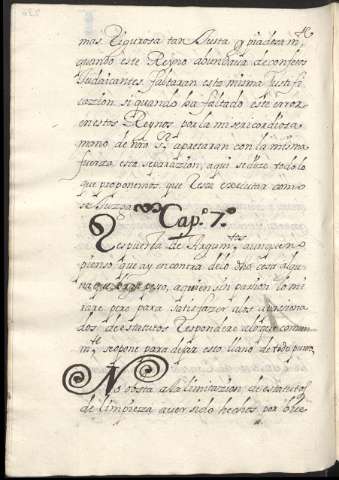 mas Rigurosa tan Justa y piadosa m.te
quando este Reyno abundava de confesos
Judaicantes faltaran esta misma Justifi
cazion, si quando ha faltado este error
en estos Reynos por la misericordiosa
mano de nro S.r apretaran con la misma
fuerza esta separazion, aqui se dize todo lo
que proponemos que esta executta como
se Juzga
Cap.o 7.o
Respuesta de Argum.tos aunque no
pienso que ay en contra delo dho cosa algu
na que haga peso, a quien sin pasion lo mi
rare pero para satisfazer a los apasiona
dos de estatutos Respondere a lo que comun
m.te se opone para dejar esto llano de todo punto
No obsta a la limitazion de estatutos
de limpieza aver sido hechos por bue